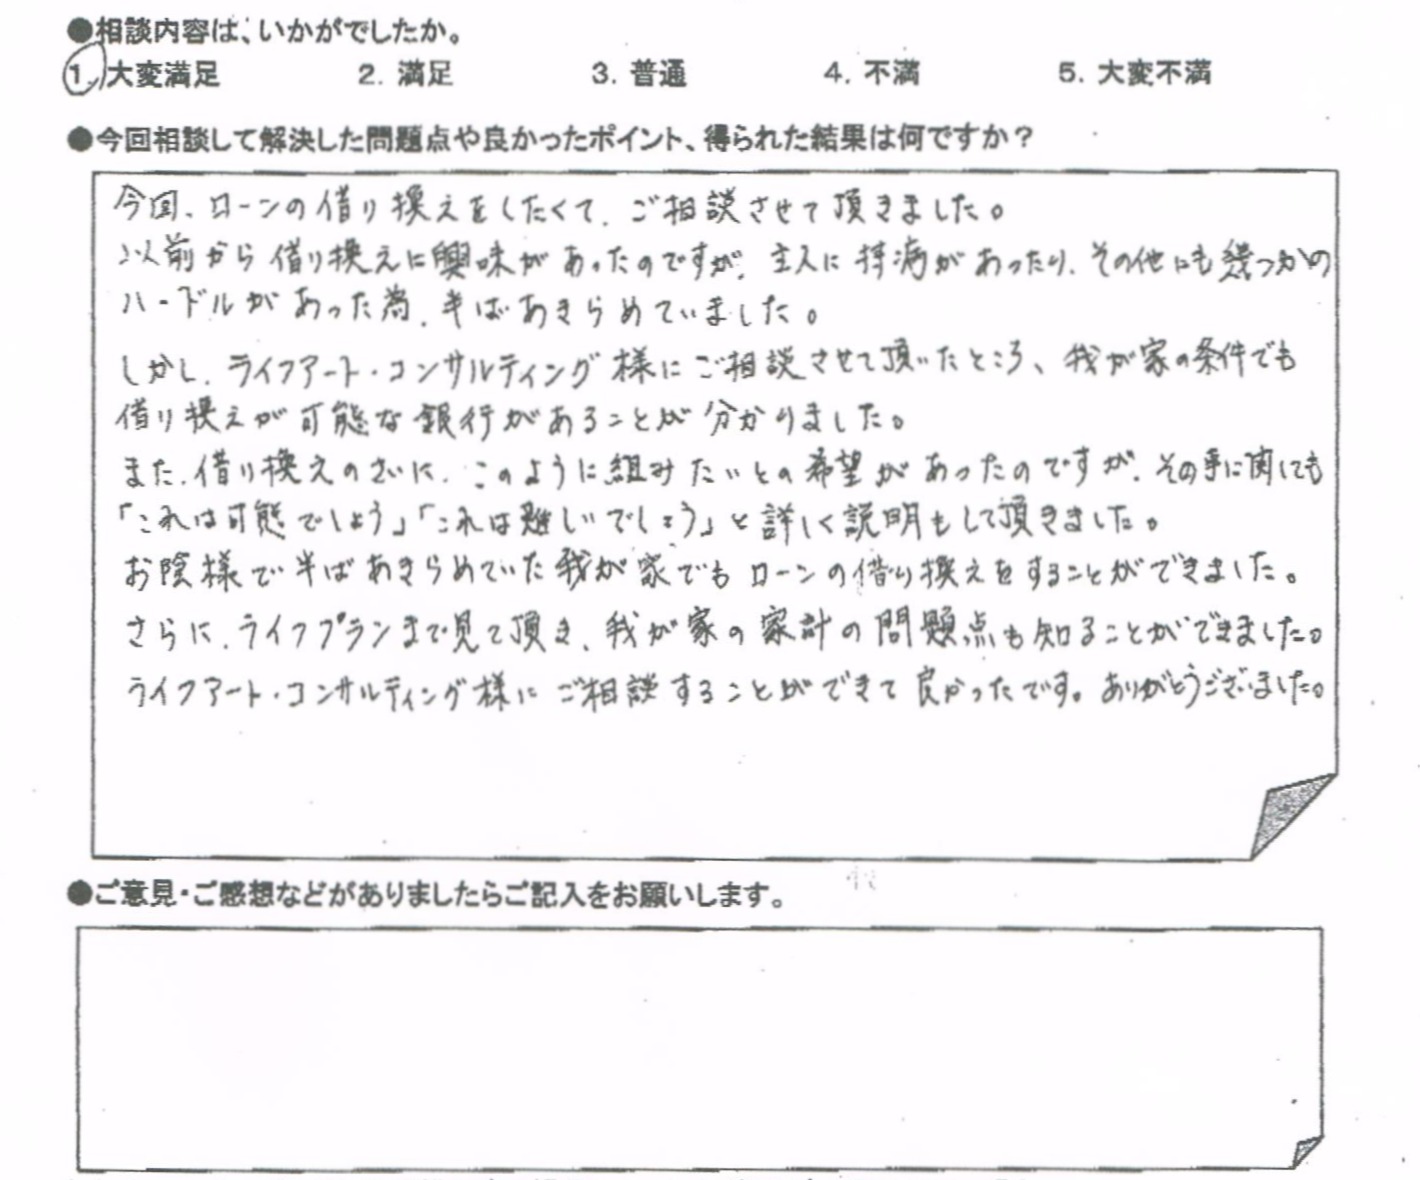 ●相談内容は、いかがでしたか。
1. 大変満足 2. 満足 3. 普通 4. 不満 5. 大変不満
●今回相談して解決した問題点や良かったポイント、得られた結果は何ですか？
今回、ローンの借り換えをしたくて、ご相談させて頂きました。
以前から借り換えに興味があったのですが、主人に持病があったり、その他にも幾つかの
ハードルがあった為、半ばあきらめていました。
しかし、ライフアート・コンサルティング様にご相談させて頂いたところ、我が家の条件でも
借り換えが可能な銀行があることが分かりました。
また、借り換えのさいに、このように組みたいとの希望があったのですが、その事に関しても
「これは可能でしょう」「これは難しいでしょう」と詳しく説明もして頂きました。
お陰様で半ばあきらめていた我が家でもローンの借り換えをすることができました。
さらに、ライフプランまで見て頂き、我が家の家計の問題点も知ることができました。
ライフアート・コンサルティング様にご相談することができて良かったです。ありがとうございました。
●ご意見・ご感想などがありましたらご記入をお願いします。